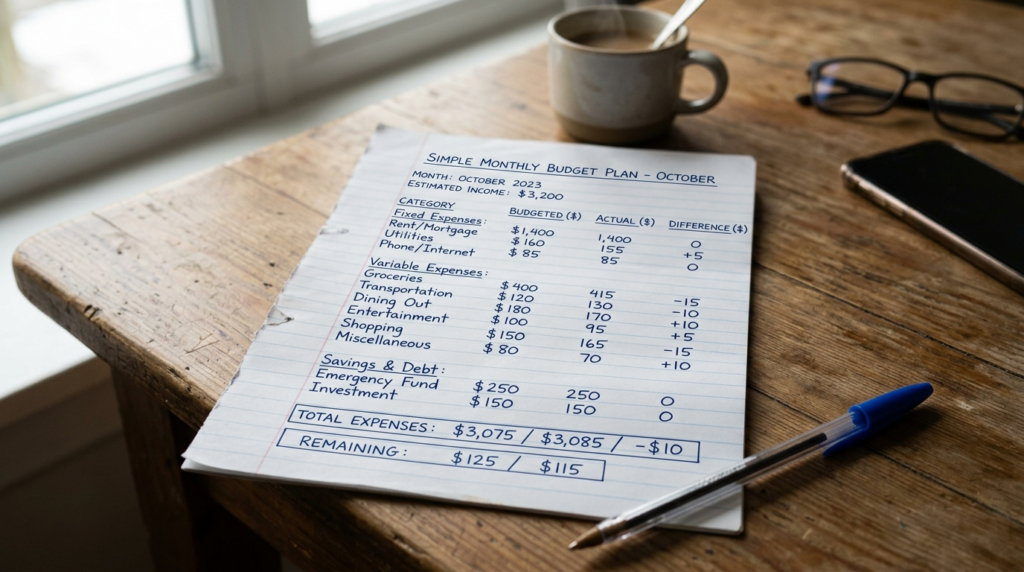 SIMPLE MONTHLY BUDGET PLAN - OCTOBER
MONTH: OCTOBER 2023
ESTIMATED INCOME: $3,200
CATEGORY BUDGETED ($) ACTUAL ($) DIFFERENCE ($)
Fixed Expenses:
Rent/Mortgage $1,400 1,400 0
Utilities $160 155 +5
Phone/Internet $85 85 0
Variable Expenses:
Groceries $400 415 -15
Transportation $120 130 -10
Dining Out $180 170 +10
Entertainment $100 95 +5
Shopping $150 165 -15
Miscellaneous $80 70 +10
Savings & Debt:
Emergency Fund $250 250 0
Investment $150 150 0
TOTAL EXPENSES: $3,075 / $3,085 / -$10
REMAINING: $125 / $115